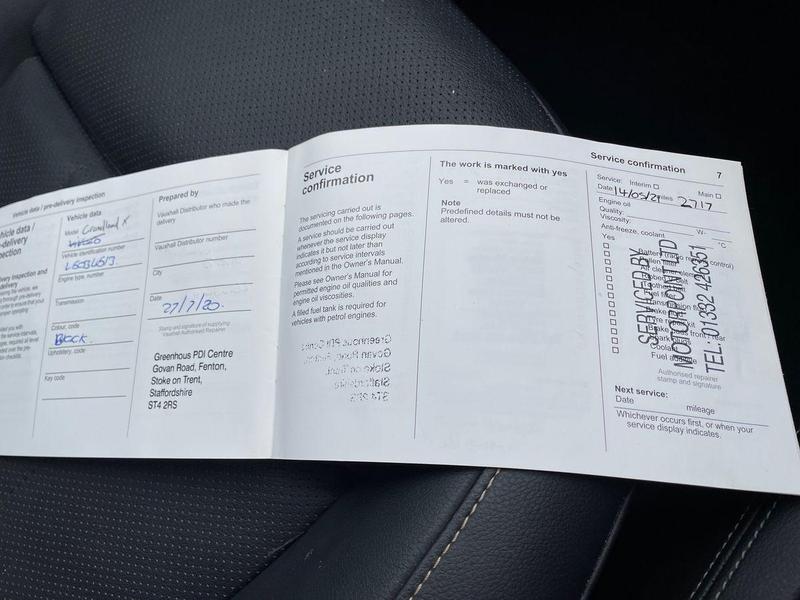 Vehicle data / pre-delivery inspection
Vehicle data /
inspection
Vehicle data
Model Crossland X
Vehicle identification number
Engine type, number
Transmission
Colour, code
BLACK.
Upholstery, code
Key code
Prepared by
Vauxhall Distributor who made the
delivery
Vauxhall Distributor number
City
Date
27/7/20.
Stamp and signature of supplying
Vauxhall Authorised Repairer
Greenhous PDI Centre
Govan Road, Fenton,
Stoke on Trent,
Staffordshire
ST4 2RS
Service
confirmation
The servicing carried out is
documented on the following pages.
A service should be carried out
whenever the service display
indicates it but not later than
according to service intervals
mentioned in the Owner's Manual.
Please see Owner's Manual for
permitted engine oil qualities and
engine oil viscosities.
A filled fuel tank is required for
vehicles with petrol engines.
The work is marked with yes
Yes = was exchanged or
replaced
Note
Predefined details must not be
altered.
Service confirmation 7
Service: Interim Main
Date 14/05/21 miles 2717
Engine oil
Quality:
Viscosity: W-
Anti-freeze, coolant °C
Yes
SERVICED BY
MOTORPOINT LTD
TEL: 01332 426351
Authorised repairer
stamp and signature
Next service:
Date mileage
Whichever occurs first, or when your
service display indicates.